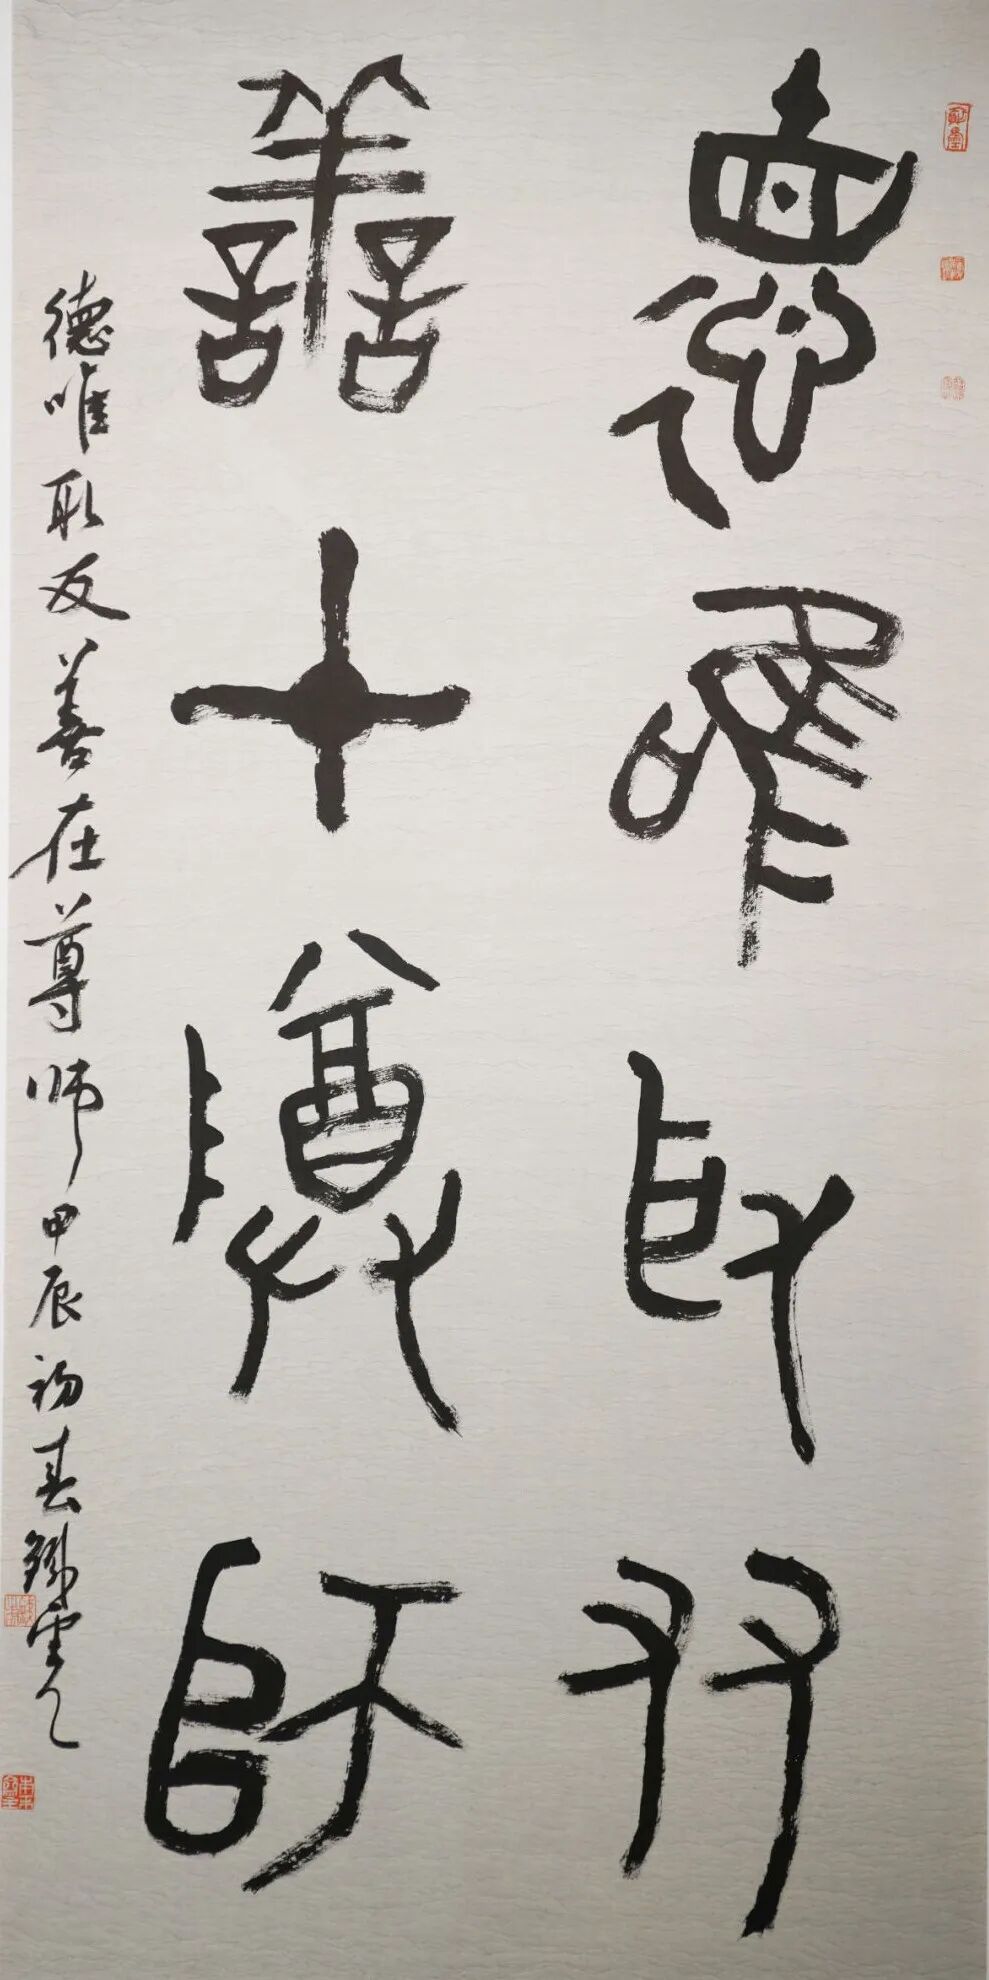 德唯取友
善在尊師
德唯取友善在尊师甲辰初春